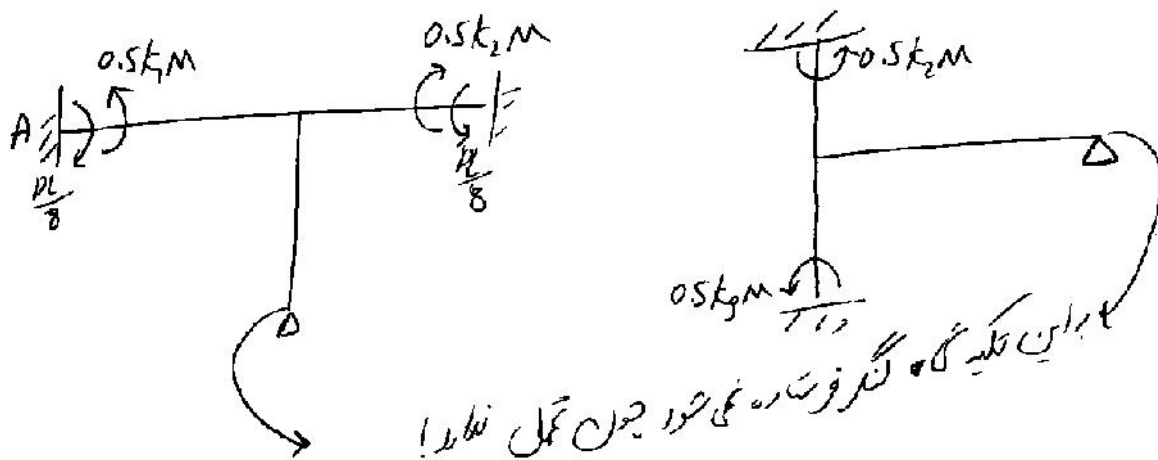 0.5k₁M
0.5k₂M
A
PL/8
PL/8
0.5k₂M
0.5k₃M
براین تکیه گاه لنگر فرستاده نمی شود چون تحمل ندارد!